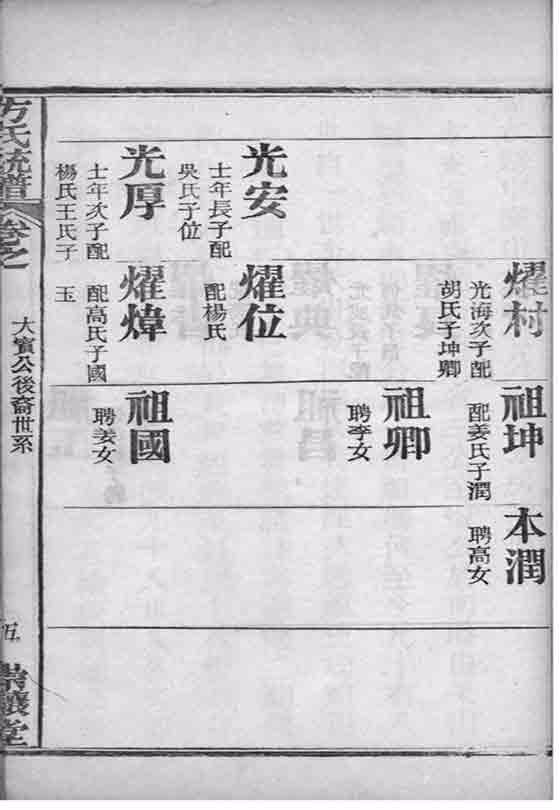 燿村
光海次子配
胡氏子坤卿
祖坤
配姜氏子潤
本潤
聘高女
祖卿
聘李女
光安
士年長子配
吳氏子位
燿位
配楊氏
光厚
士年次子配
楊氏王氏子
燿煒
配高氏子國
玉
祖國
聘姜女
方氏統譜
卷之
大賓公後裔世系